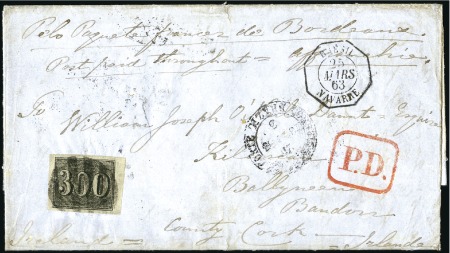 Pelo Paquete Frances de Bordeaux
Post paid throughout =
BRESIL
25
MARS
63
NAVARRE
To William Joseph O'
Esquire
300
P.D.
Ballyneen
Bandon
County Cork =
Ireland =
= Irlanda